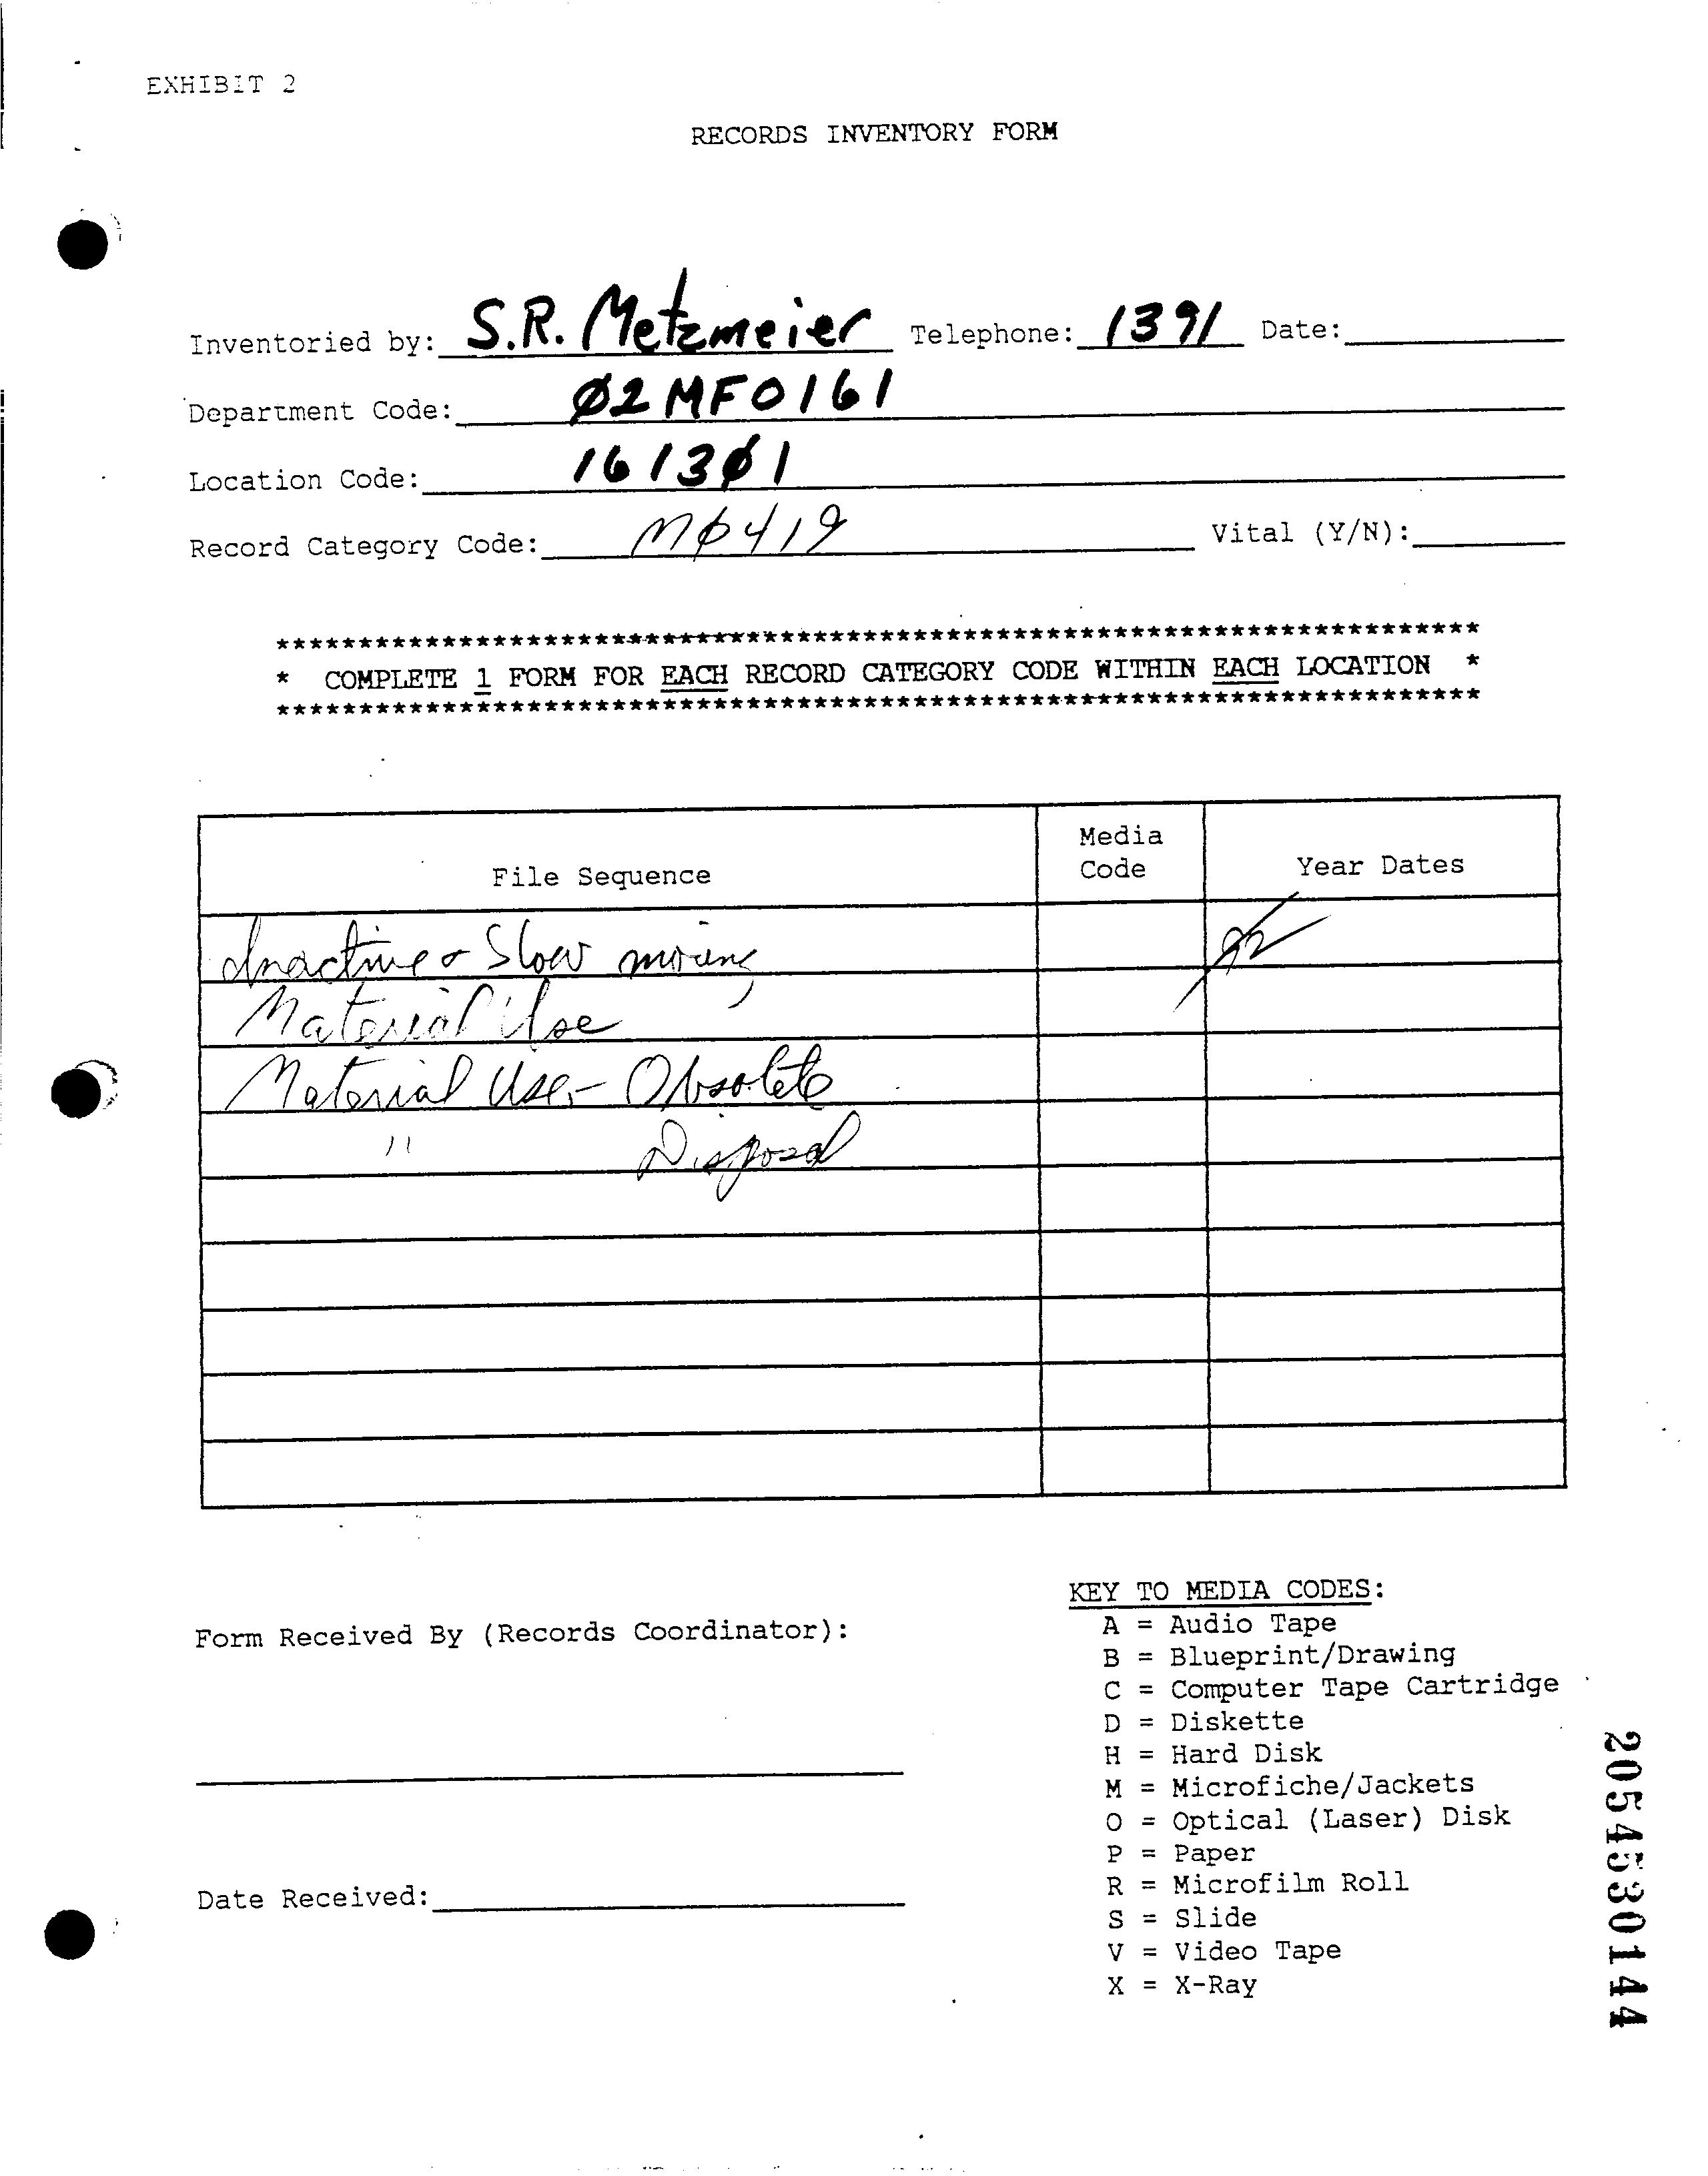 EXHIBIT 2
RECORDS INVENTORY FORM
Inventoried by: S.R. Metzmeier Telephone: 1391 Date:
Department Code: Ø2MF0161
Location Code: 1613Ø1
Record Category Code: MØ419 Vital (Y/N):
************************************************************************
* COMPLETE 1 FORM FOR EACH RECORD CATEGORY CODE WITHIN EACH LOCATION *
************************************************************************
File Sequence Media Code Year Dates
Inactive & Slow moving
Material Use
Material Use - Obsolete
" Disposal
Form Received By (Records Coordinator):
Date Received:
KEY TO MEDIA CODES:
A = Audio Tape
B = Blueprint/Drawing
C = Computer Tape Cartridge
D = Diskette
H = Hard Disk
M = Microfiche/Jackets
O = Optical (Laser) Disk
P = Paper
R = Microfilm Roll
S = Slide
V = Video Tape
X = X-Ray
2054530144